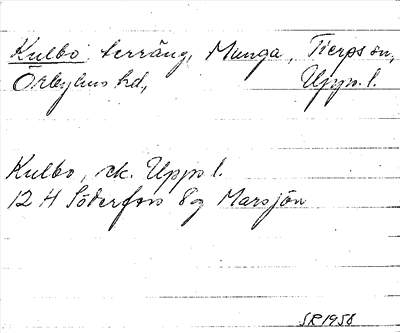 Kulbo terräng, Munga, Tierps sn,
Örbyhus hd, Upps. l.
Kulbo, ek. Upps l.
12 H Söderfors 8g Marsjön
SR 1958